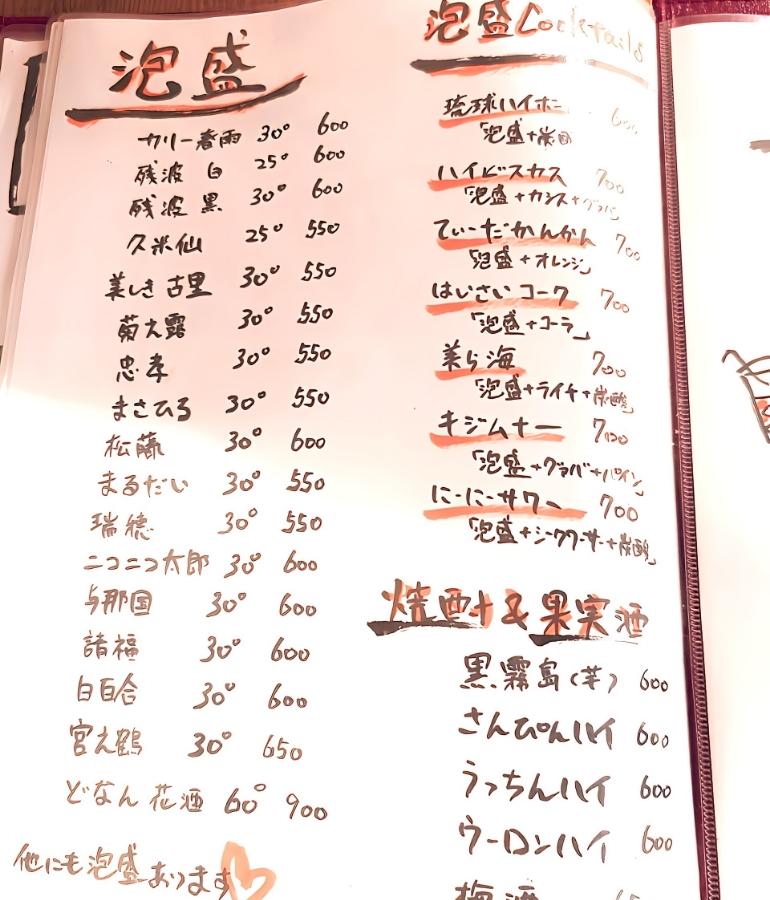 泡盛
カリー春雨 30° 600
残波 白 25° 600
残波 黒 30° 600
久米仙 25° 550
美しき古里 30° 550
菊之露 30° 550
忠孝 30° 550
まさひろ 30° 550
松藤 30° 600
まるだい 30° 550
瑞穂 30° 550
ニコニコ太郎 30° 600
与那国 30° 600
諸福 30° 600
白百合 30° 600
宮之鶴 30° 650
どなん 花酒 60° 900
他にも泡盛あります
泡盛Cocktails
琉球ハイボール 600
「泡盛+炭酸」
ハイビスカス 700
「泡盛+カシス+グァバ」
てぃーだかんかん 700
「泡盛+オレンジ」
はいさいコーク 700
「泡盛+コーラ」
美ら海 700
「泡盛+ライチ+炭酸」
キジムナー 700
「泡盛+グァバ+パイン」
にーにーサワー 700
「泡盛+シークワーサー+炭酸」
焼酎 & 果実酒
黒霧島(芋) 600
さんぴんハイ 600
うっちんハイ 600
ウーロンハイ 600
梅酒